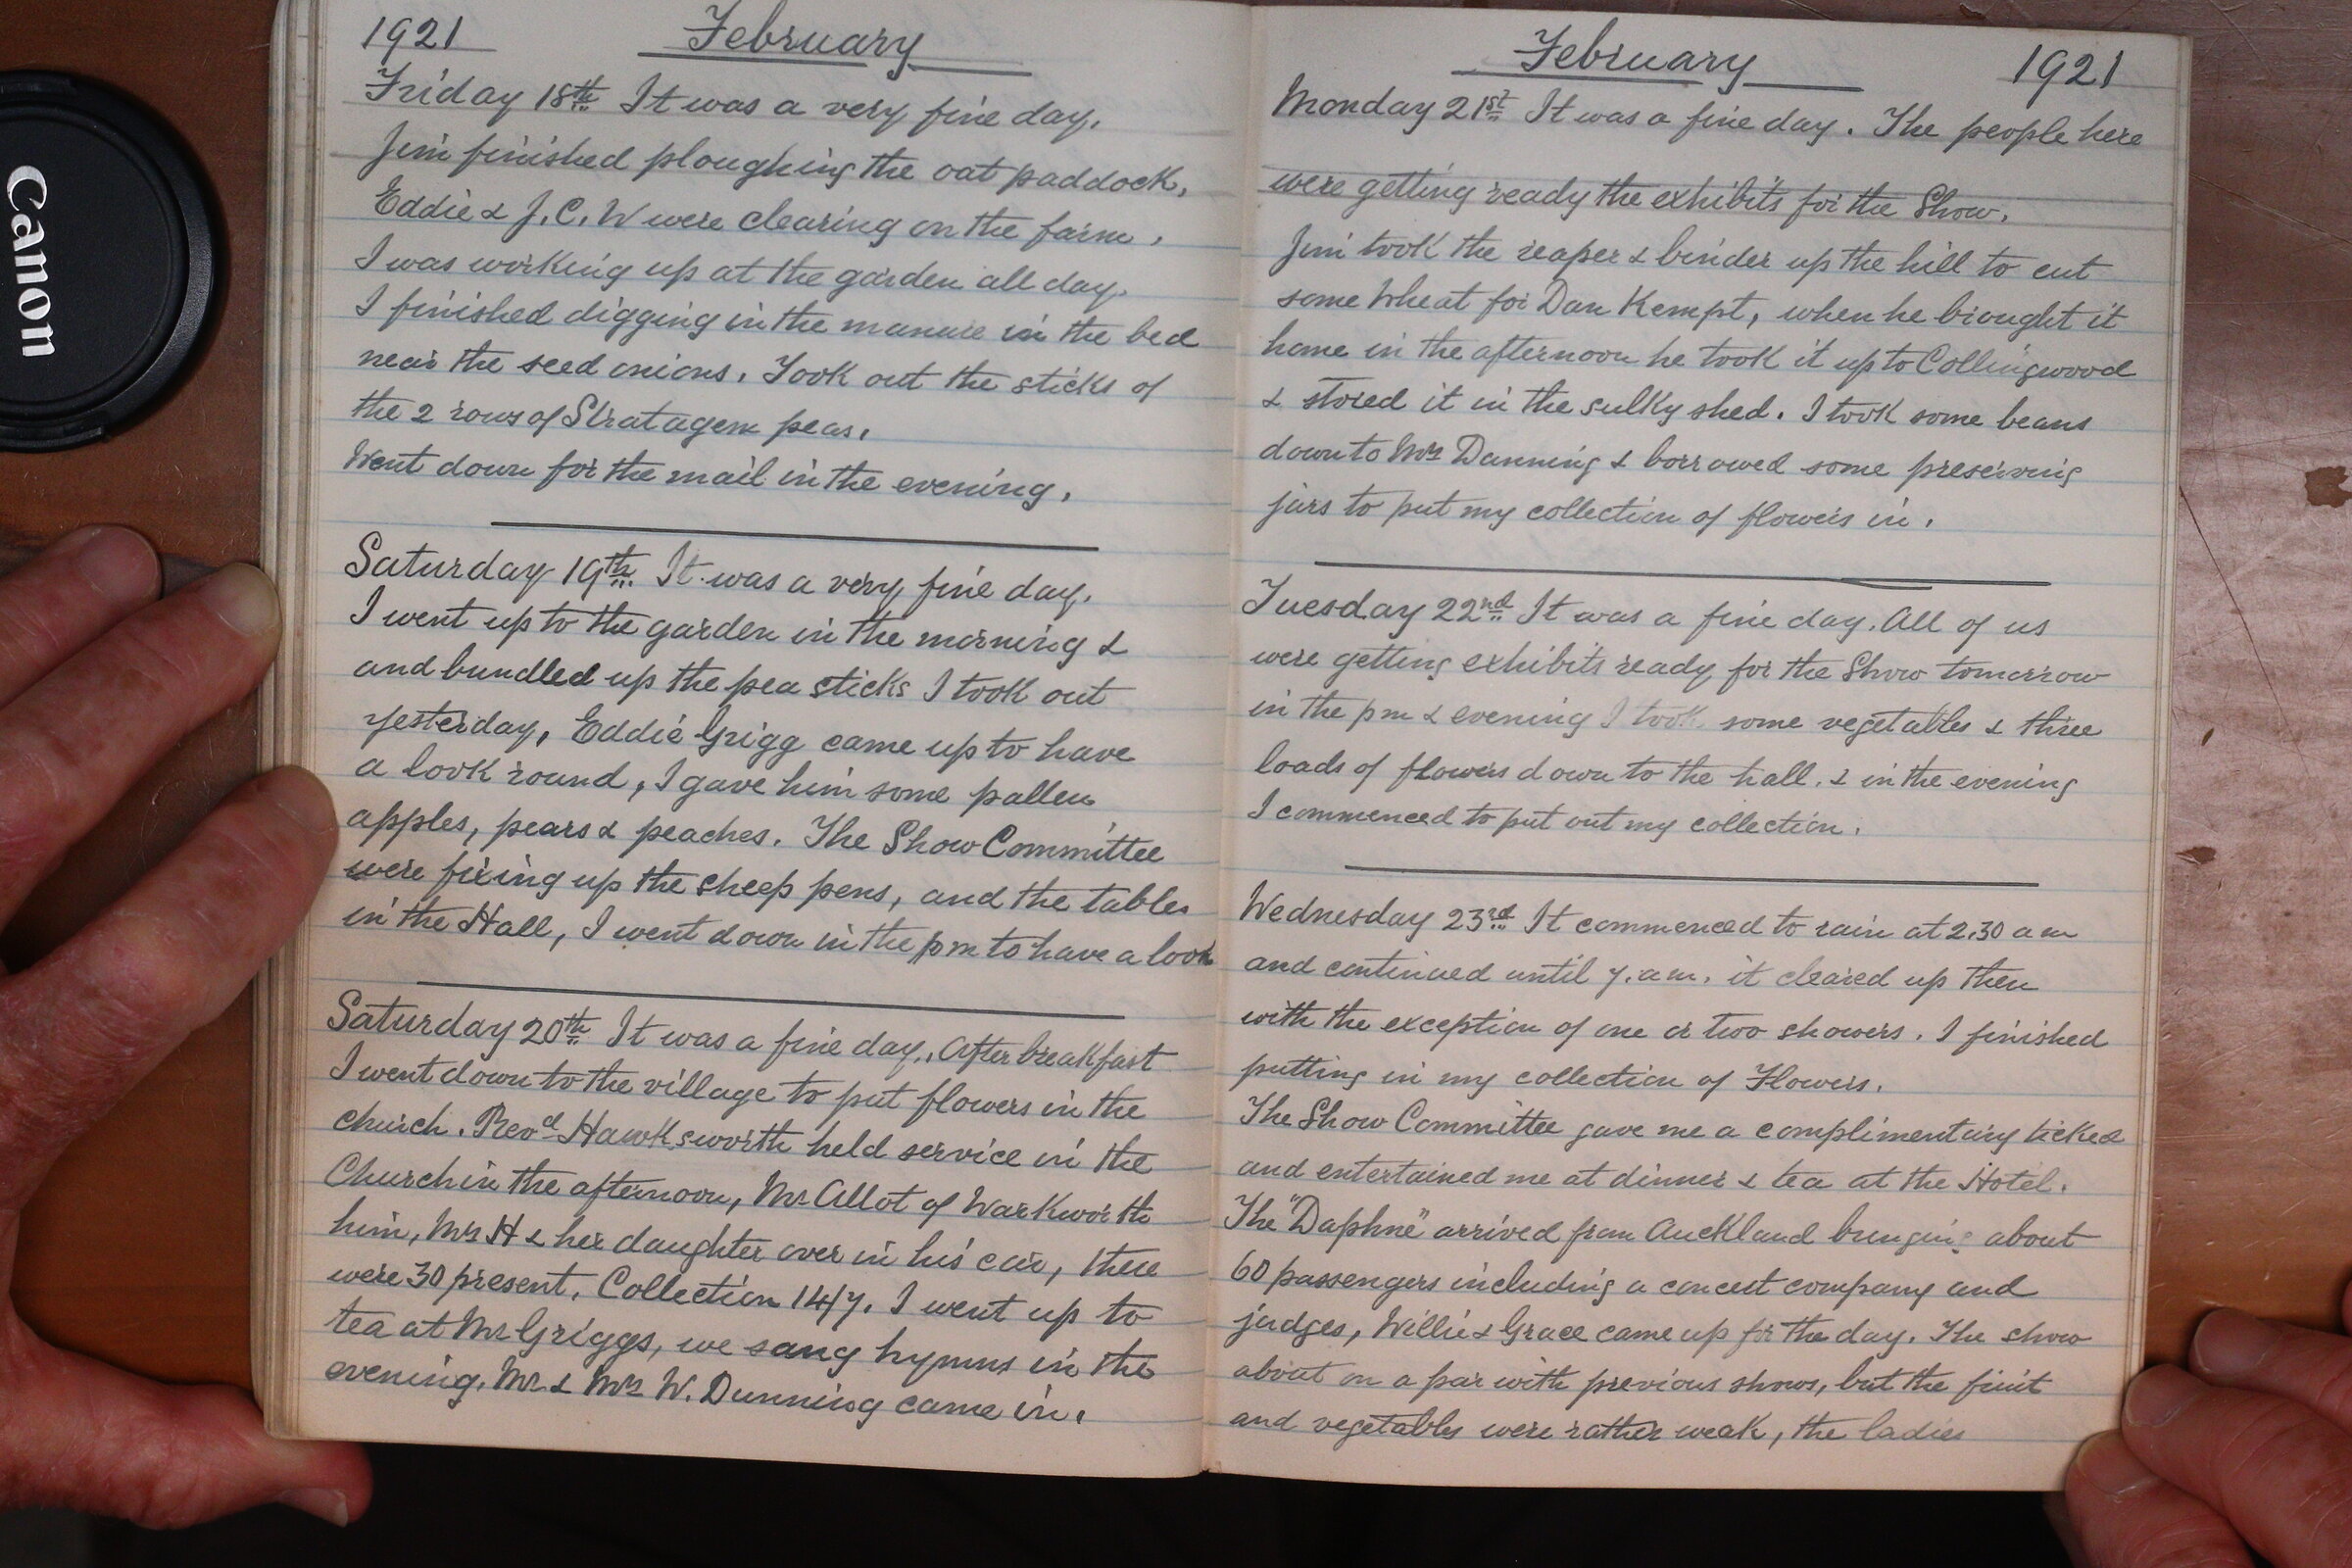 Canon
1921 February
Friday 18th It was a very fine day.
Jim finished ploughing the oat paddock,
Eddie & J. C. W were clearing on the farm.
I was working up at the garden all day.
I finished digging in the manure in the bed
near the seed onions. Took out the sticks of
the 2 rows of Stratagem peas.
Went down for the mail in the evening.
Saturday 19th. It was a very fine day.
I went up to the garden in the morning &
and bundled up the pea sticks I took out
yesterday, Eddie Grigg came up to have
a look round, I gave him some pallen
apples, pears & peaches. The Show Committee
were fixing up the sheep pens, and the tables
in the Hall, I went down in the pm to have a look
Saturday 20th It was a fine day. After breakfast
I went down to the village to put flowers in the
church. Revd Hawksworth held service in the
Church in the afternoon, Mr Allot of Warkworth
him, Mrs H & her daughter over in his car, there
were 30 present. Collection 14/7. I went up to
tea at Mr Griggs, we sang hymns in the
evening. Mr & Mrs W. Dunning came in.
February 1921
Monday 21st It was a fine day. The people here
were getting ready the exhibits for the Show.
Jim took the reaper & binder up the hill to cut
some Wheat for Dan Kempt, when he brought it
home in the afternoon he took it up to Collingwood
& stored it in the sulky shed. I took some beans
down to Mrs Dunning & borrowed some preserving
jars to put my collection of flowers in.
Tuesday 22nd It was a fine day. All of us
were getting exhibits ready for the Show tomorrow
in the pm & evening I took some vegetables & three
loads of flowers down to the hall. & in the evening
I commenced to put out my collection.
Wednesday 23rd It commenced to rain at 2.30 am
and continued until 7. am. it cleared up then
with the exception of one or two showers. I finished
putting in my collection of Flowers.
The Show Committee gave me a complimentary ticket
and entertained me at dinner & tea at the Hotel.
The "Daphne" arrived from Auckland bringing about
60 passengers including a concert company and
judges, Willie & Grace came up for the day. The show
about on a par with previous shows, but the fruit
and vegetables were rather weak, the ladies